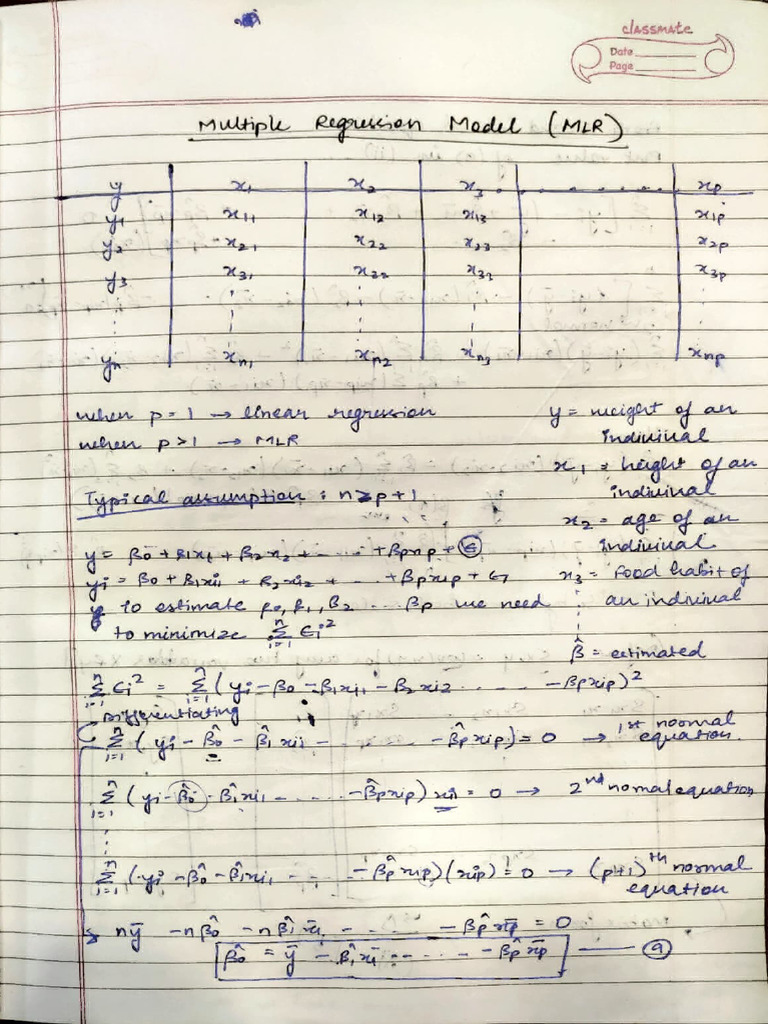 classmate
Date
Page
Multiple Regression Model (MLR)
y x₁ x₂ x₃ . . . . . . . . xp
y₁ x₁₁ x₁₂ x₁₃ x₁p
y₂ x₂₁ x₂₂ x₂₃ x₂p
y₃ x₃₁ x₃₂ x₃₃ x₃p
⋮ ⋮ ⋮ ⋮ ⋮
yn xn₁ xn₂ xn₃ xnp
when p = 1 → linear regression
when p > 1 → MLR
Typical assumption : n ≥ p+1
y = weight of an
indiviual
x₁ = height of an
indiviual
x₂ = age of an
indiviual
x₃ = food habit of
⋮ an indiviual
β̂ = estimated
y = β₀ + β₁x₁ + β₂x₂ + - - - - + βpxp + ϵ
yi = β₀ + β₁xi₁ + β₂xi₂ + - . . + βpxip + ϵi
to estimate β₀, β₁, β₂ . . . βp we need
to minimize Σⁿᵢ₌₁ ϵi²
Σⁿᵢ₌₁ ϵi² = Σⁿᵢ₌₁ (yi - β₀ - β₁xi₁ - β₂xi₂ . . . . . - βpxip)²
Differentiating
Σⁿᵢ₌₁ (yi - β̂₀ - β̂₁xi₁ - . . . . . - β̂pxip) = 0 → 1st normal
equation.
Σⁿᵢ₌₁ (yi - β̂₀ - β̂₁xi₁ - . . . . . - β̂pxip) xi₁ = 0 → 2nd nomal equation
⋮
Σⁿᵢ₌₁ (yi - β̂₀ - β̂₁xi₁ - . . . . - β̂pxip)(xip) = 0 → (p+1)th normal
equation
nȳ - nβ̂₀ - nβ̂₁x̄₁ - . . . . . - β̂px̄p = 0
β̂₀ = ȳ - β̂₁x̄₁ - . . . . - β̂px̄p — (a)